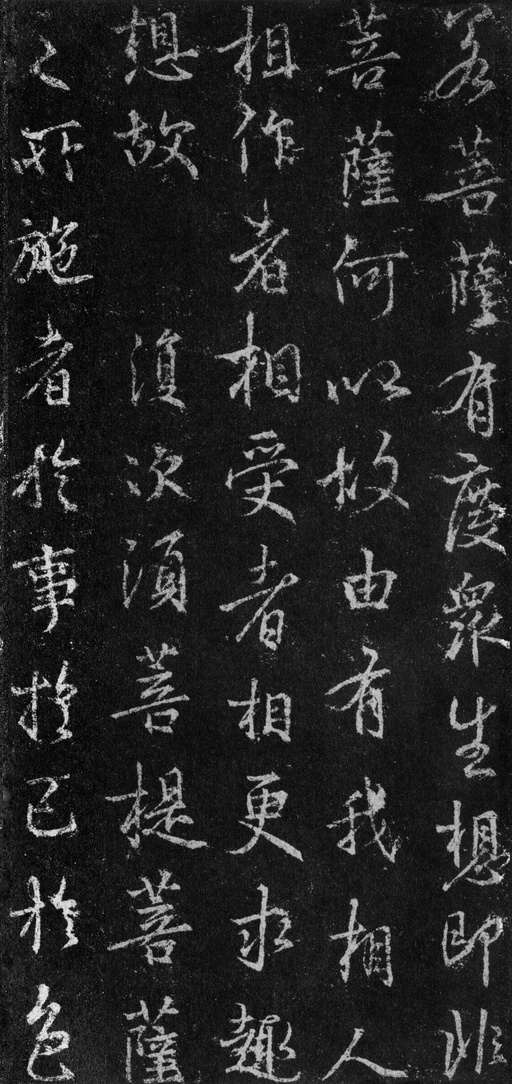 若菩薩有度衆生想即非
菩薩何以故由有我相人
相作者相受者相更求趣
想故　須次須菩提菩薩
之所施者於事於已於色